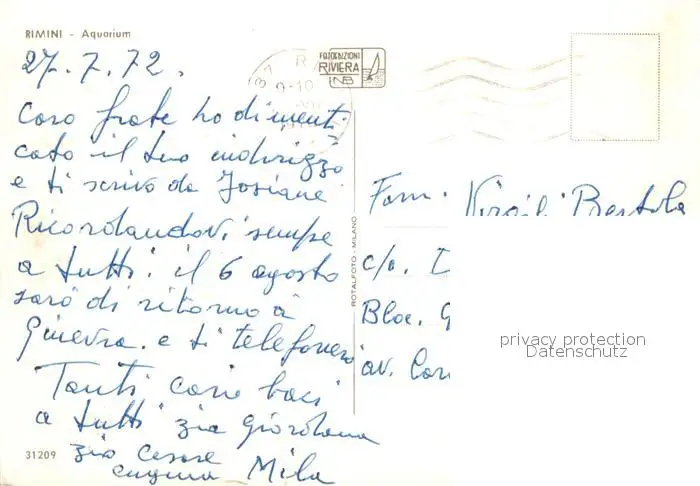 RIMINI - Aquarium
27.7.72.
FOTOEDIZIONI
RIVIERA
9-10
Caro frate ho dimenti
cato il tuo indirizzo
e ti scrivo da Josiane
Ricordandovi sempre
a tutti. il 6 agosto
sarò di ritorno a
Ginevra. e ti telefonerò
Tanti cari baci
a tutti zia Giordana
zio Cesare
cugina Mila
31209
ROTALFOTO - MILANO
Fam. Virgili Bertola
c/o.
Bloc. G
av.
privacy protection
Datenschutz